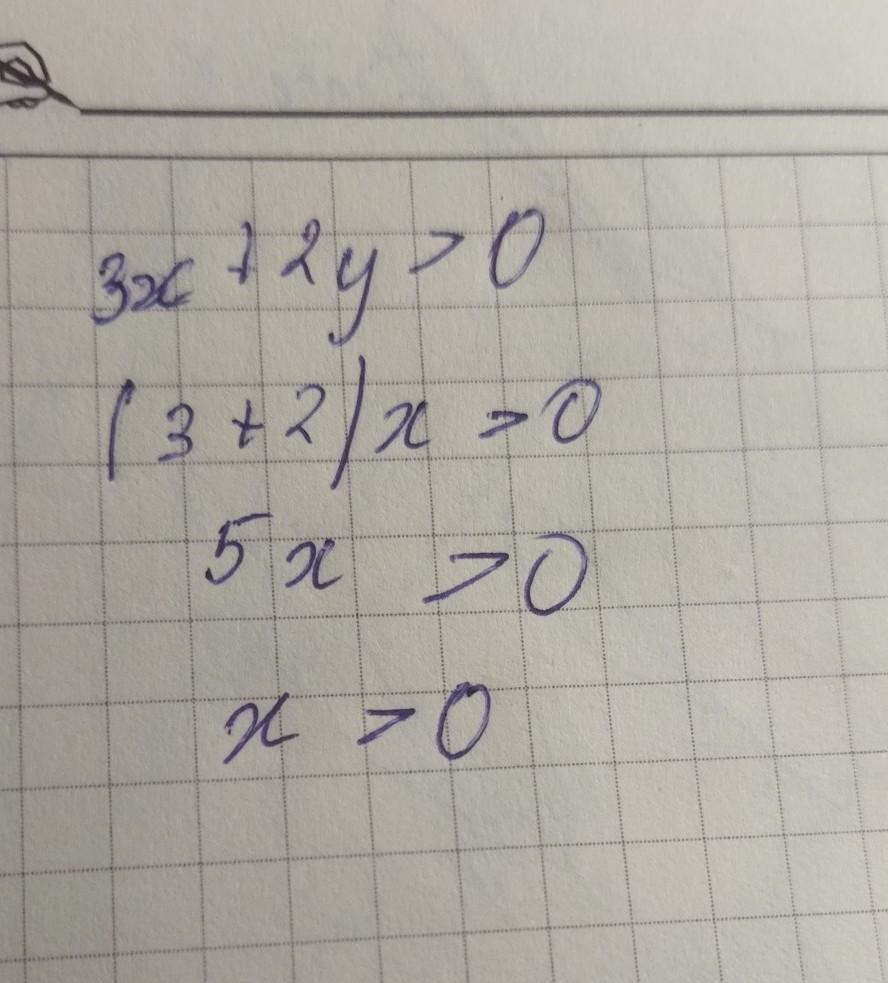 3x + 2y > 0
(3 + 2)x > 0
5x > 0
x > 0